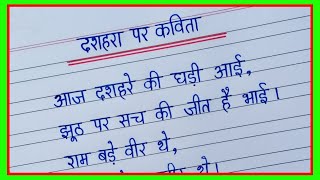 दशहरा पर कविता
आज दशहरे की घड़ी आई,
झूठ पर सच की जीत है भाई।
राम बड़े वीर थे,
वीर थे।